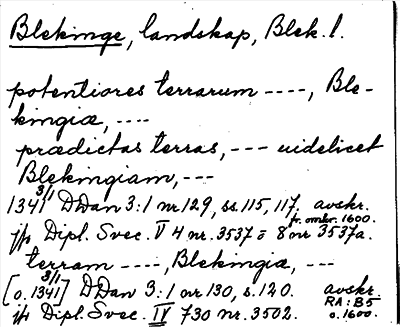 Blekinge, landskap, Blek. l.
potentiores terrarum ----, Ble-
kingiæ, ----
prædictas terras, --- uidelicet
Blekingiam, ---
3/1
1341 DDan 3:1 nr 129, ss. 115, 117. avskr.
fr. omkr. 1600.
jfr Dipl. Svec. V 4 nr. 3537 = 8 nr 3537a.
terram ----, Blekingia, ---
3/1
[o. 1341] DDan 3:1 nr 130, s. 120. avskr.
RA: B5
jfr Dipl. Svec. IV 730 nr. 3502. o. 1600.